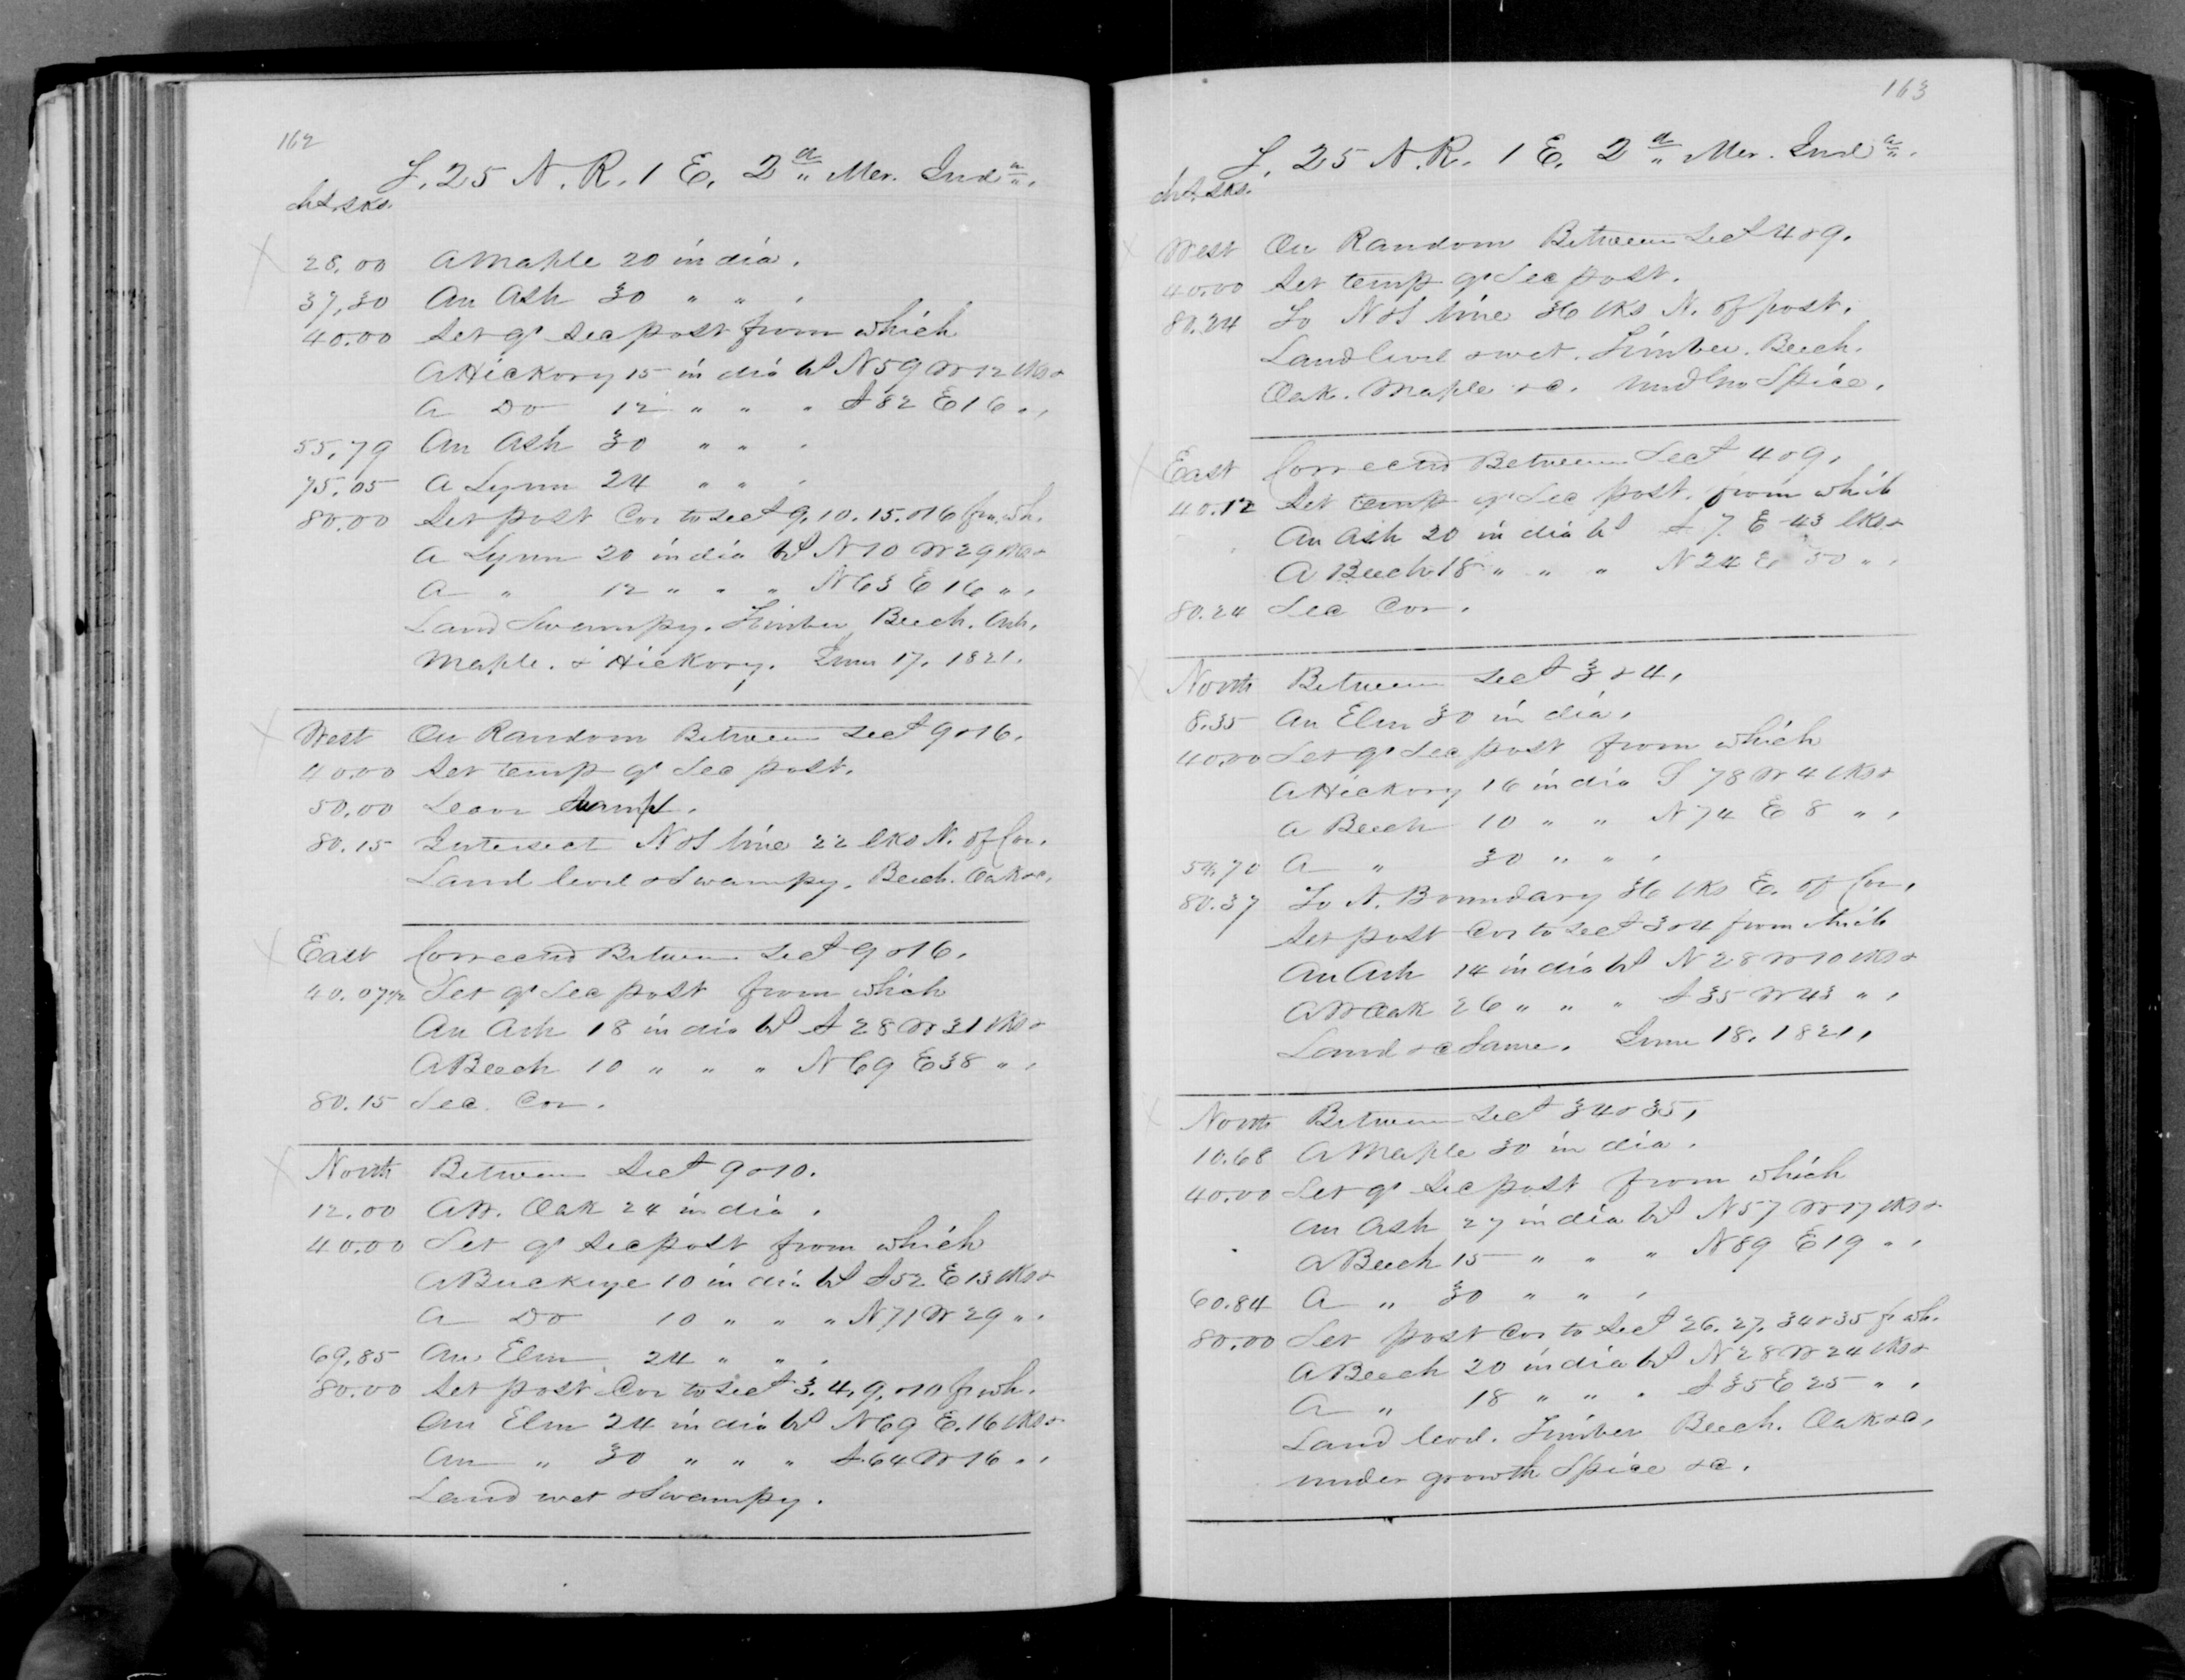 162
T. 25 N. R. 1 E. 2d Mer. Inda.
chs. lks.
28.00 A Maple 20 in dia.
37.30 An Ash 30 " " .
40.00 Set qr sec post from which
A Hickory 15 in dia bs N59 W12 lks &
A Do 12 " " " S82 E16 " .
55.79 An Ash 30 " " .
75.05 A Lynn 24 " " .
80.00 Set post Cor to secs 9. 10. 15. &16 frm. wh.
A Lynn 20 in dia bs N10 W29 lks &
A " 12 " " " N63 E16 " .
Land Swampy. Timber Beech. Ash.
Maple. & Hickory. June 17. 1821.
West On Random Between secs 9 &16.
40.00 Set temp qr Sec post.
50.00 Leave Swamp.
80.15 Intersect N&S line 22 lks N. of Cor.
Land level & Swampy. Beech. Oak &c.
East Corrected Between secs 9 &16.
40.07½ Set qr Sec post from which
An Ash 18 in dia bs S28 W31 lks &
A Beech 10 " " " N69 E38 " .
80.15 Sec. Cor.
North Between Secs 9 &10.
12.00 A W. Oak 24 in dia .
40.00 Set qr sec post from which
A Buckeye 10 in dia bs S52 E13 lks &
A Do 10 " " " N71 W29 " .
69.85 An Elm 24 " " .
80.00 Set post Cor to secs 3. 4, 9, &10 fr wh.
An Elm 24 in dia bs N69 E. 16 lks &
An " 30 " " " S.64 W16 " .
Land wet & Swampy.
163
T. 25 N. R. 1 E. 2d Mer. Inda.
chs. lks.
West On Random Between secs 4 &9.
40.00 Set temp qr Sec post.
80.24 To N&S line 36 lks N. of post.
Land level & wet. Timber. Beech.
Oak. Maple &c. Undgro Spice.
East Corrected Between Secs 4 &9.
40.12 Set temp qr Sec post. from which
An Ash 20 in dia bs S 7. E 43 lks &
A Beech 18 " " " N24 E 50 " .
80.24 Sec Cor.
North Between secs 3 & 4.
8.35 An Elm 30 in dia.
40.00 Set qr Sec post from which
A Hickory 16 in dia S 78 W 4 lks &
A Beech 10 " " N74 E 8 " .
54.70 A " 30 " " .
80.37 To N. Boundary 36 lks E. of Cor.
Set post Cor to secs 3 &4 from which
An Ash 14 in dia bs N28 W10 lks &
A W Oak 26 " " " S35 W43 " .
Land &c Same. June 18. 1821.
North Between secs 34 & 35,
10.68 A Maple 30 in dia.
40.00 Set qr Sec post from which
An Ash 27 in dia bs N57 W17 lks &
A Beech 15 " " " N89 E19 " .
60.84 A " 30 " " .
80.00 Set post Cor to secs 26. 27. 34 &35 fr wh.
A Beech 20 in dia bs N28 W24 lks &
A " 18 " " " S35 E25 " .
Land level. Timber Beech. Oak &c.
under growth Spice &c.